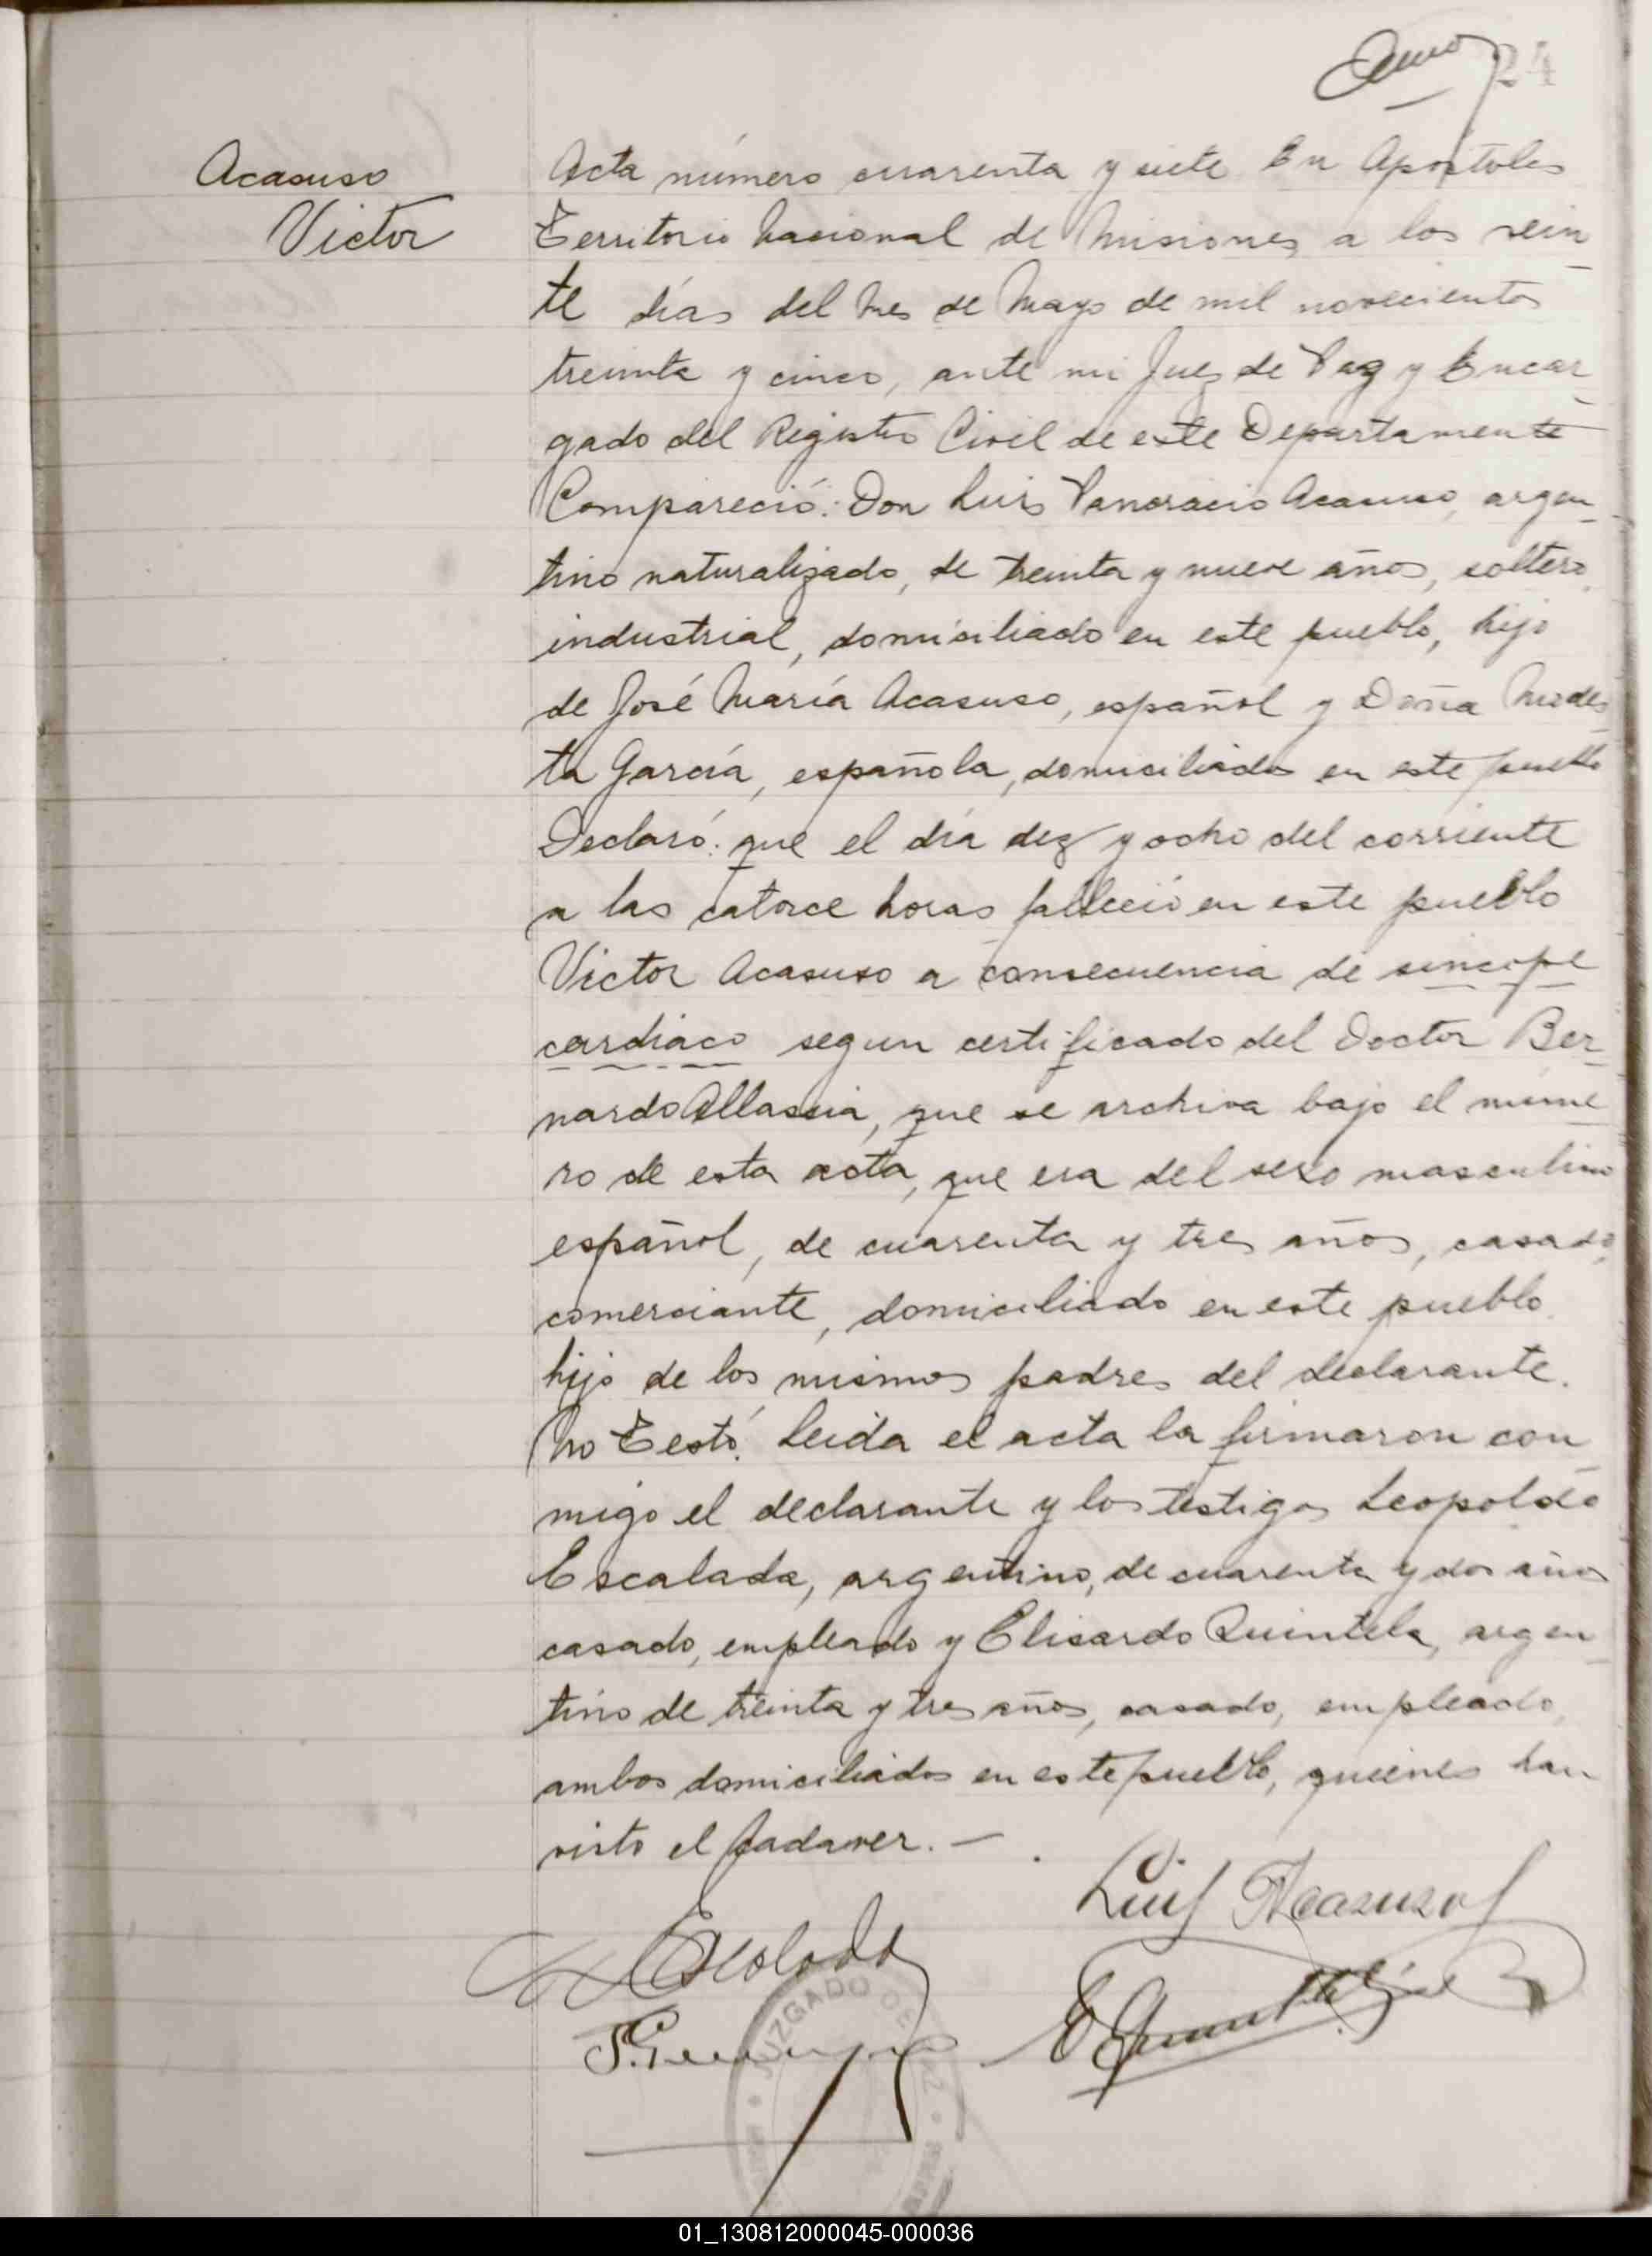 24
Acasuso
Victor
Acta número cuarenta y siete En Apóstoles
Territorio Nacional de Misiones a los vein
te días del mes de Mayo de mil novecientos
treinta y cinco, ante mi Juez de Paz y Encar
gado del Registro Civil de este Departamento
Compareció: Don Luis Pancracio Acasuso, argen
tino naturalizado, de treinta y nueve años, soltero,
industrial, domiciliado en este pueblo, hijo
de José María Acasuso, español y Doña Modes
ta García, española, domiciliados en este pueblo
Declaró: que el día diez y ocho del corriente
a las catorce horas falleció en este pueblo
Victor Acasuso a consecuencia de sincope
cardiaco segun certificado del Doctor Ber
nardo Allassia, que se archiva bajo el núme
ro de esta acta, que era del sexo masculino
español, de cuarenta y tres años, casado,
comerciante, domiciliado en este pueblo
hijo de los mismos padres del declarante.
No Testó. Leida el acta la firmaron con
migo el declarante y los testigos Leopoldo
Escalada, argentino, de cuarenta y dos años
casado, empleado y Elisardo Quintela, argen
tino de treinta y tres años, casado, empleado,
ambos domiciliados en este pueblo, quienes han
visto el cadaver. —
Luis Acasuso
L Escalada
E Quintela
JUZGADO DE PAZ
01_130812000045-000036